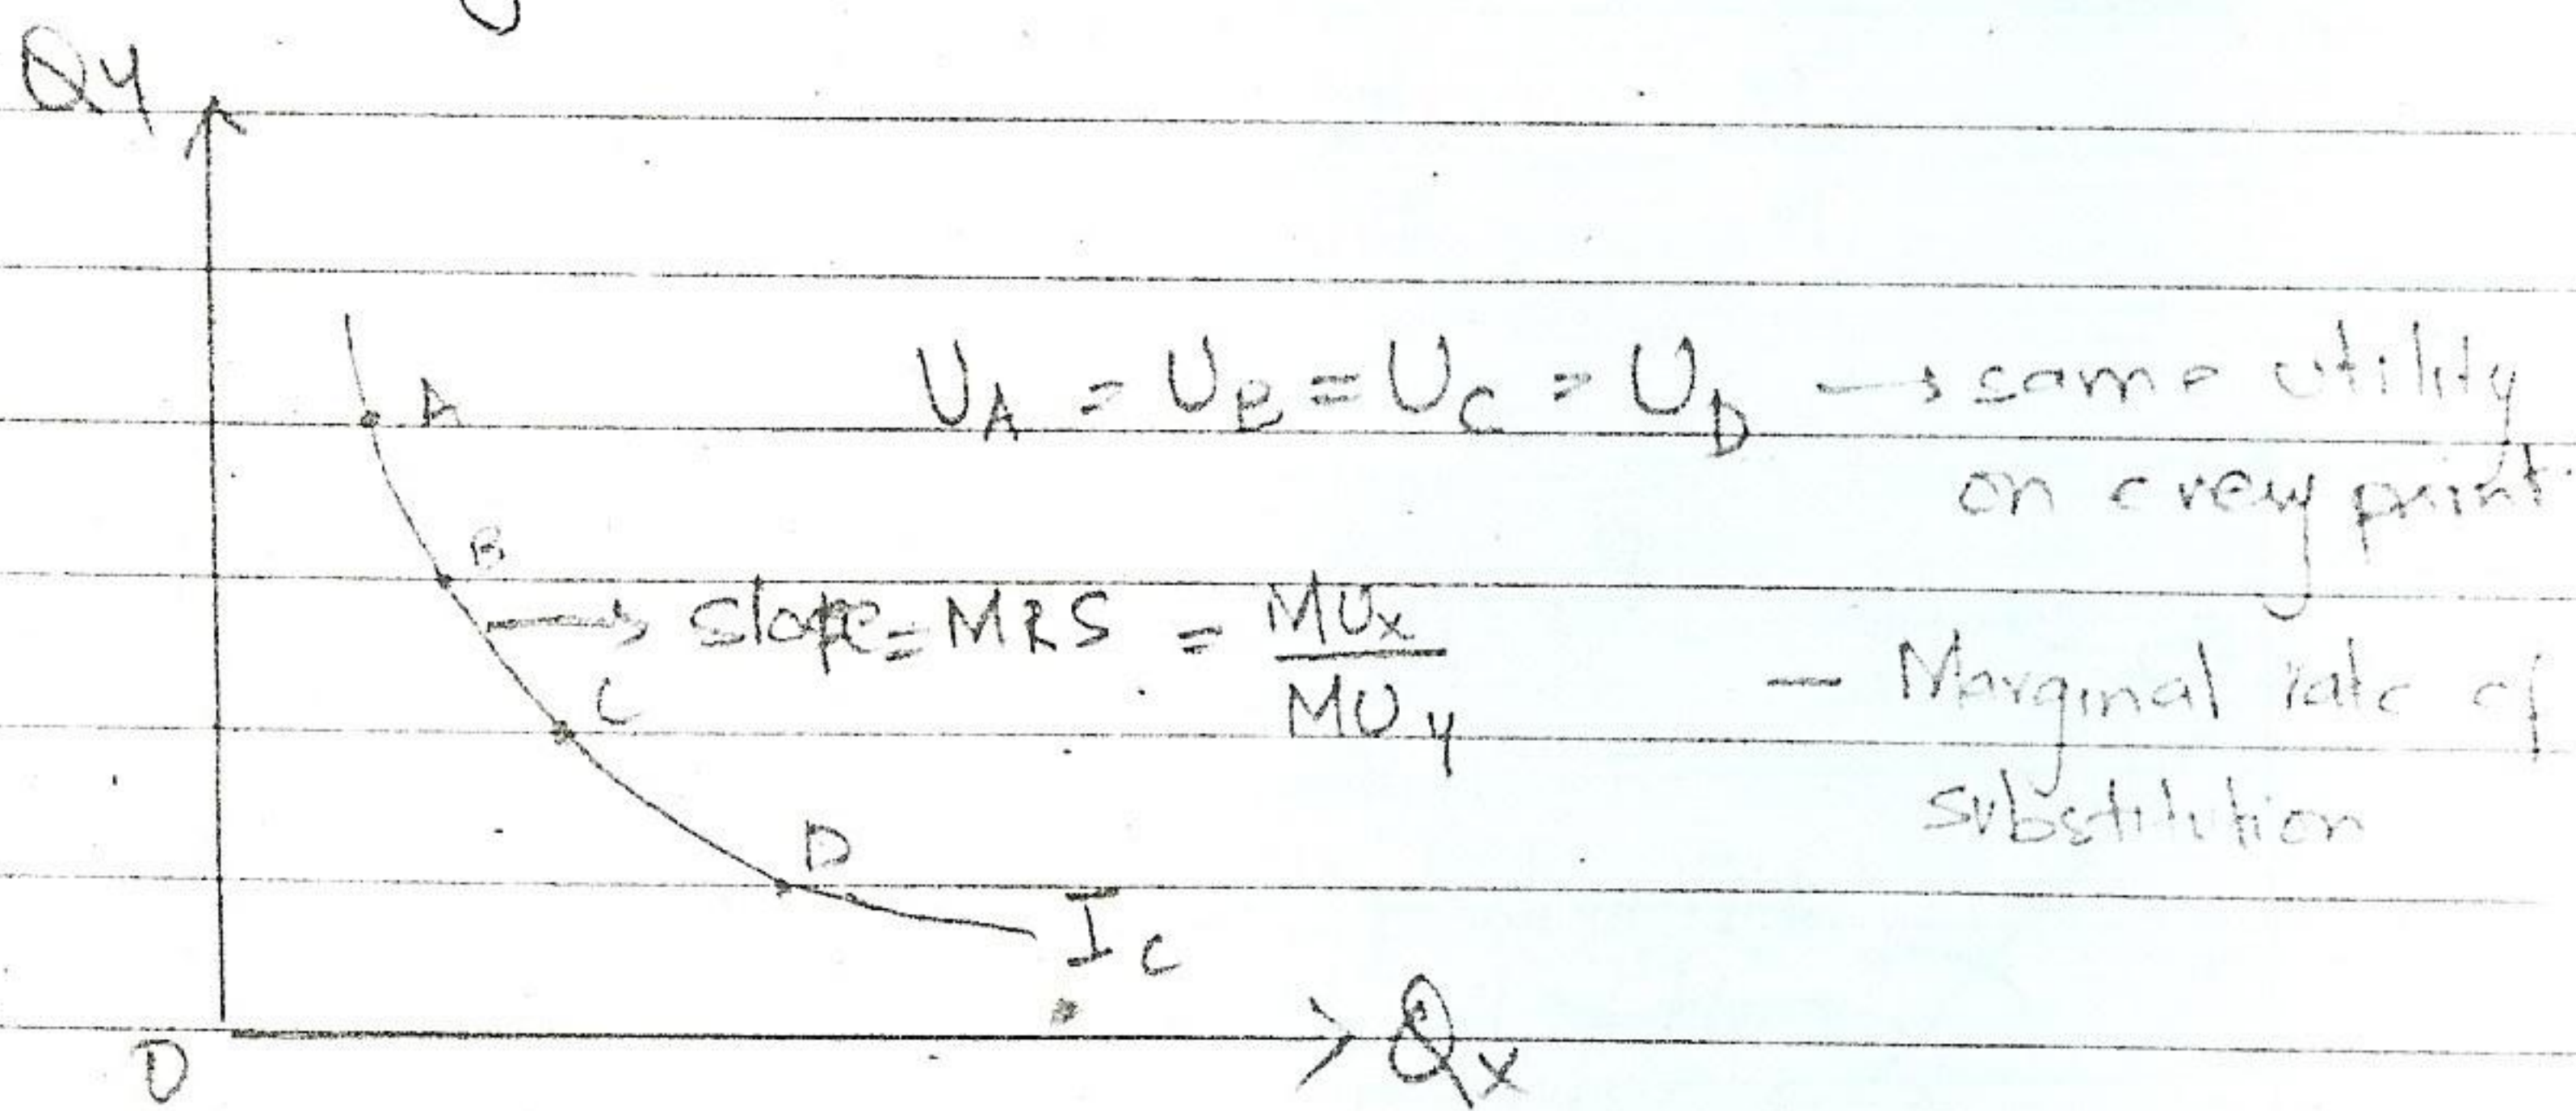 Qy
A
U_A = U_B = U_C = U_D → same utility
on every point
B
→ slope = MRS = MUx / MUy
— Marginal rate of
substitution
C
D
Ic
O
Qx